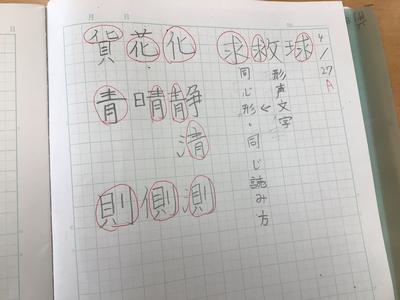 月 日
4/27
A
求救球
形声文字
同じ形・同じ読み方
貨花化
青晴静
清
則側測